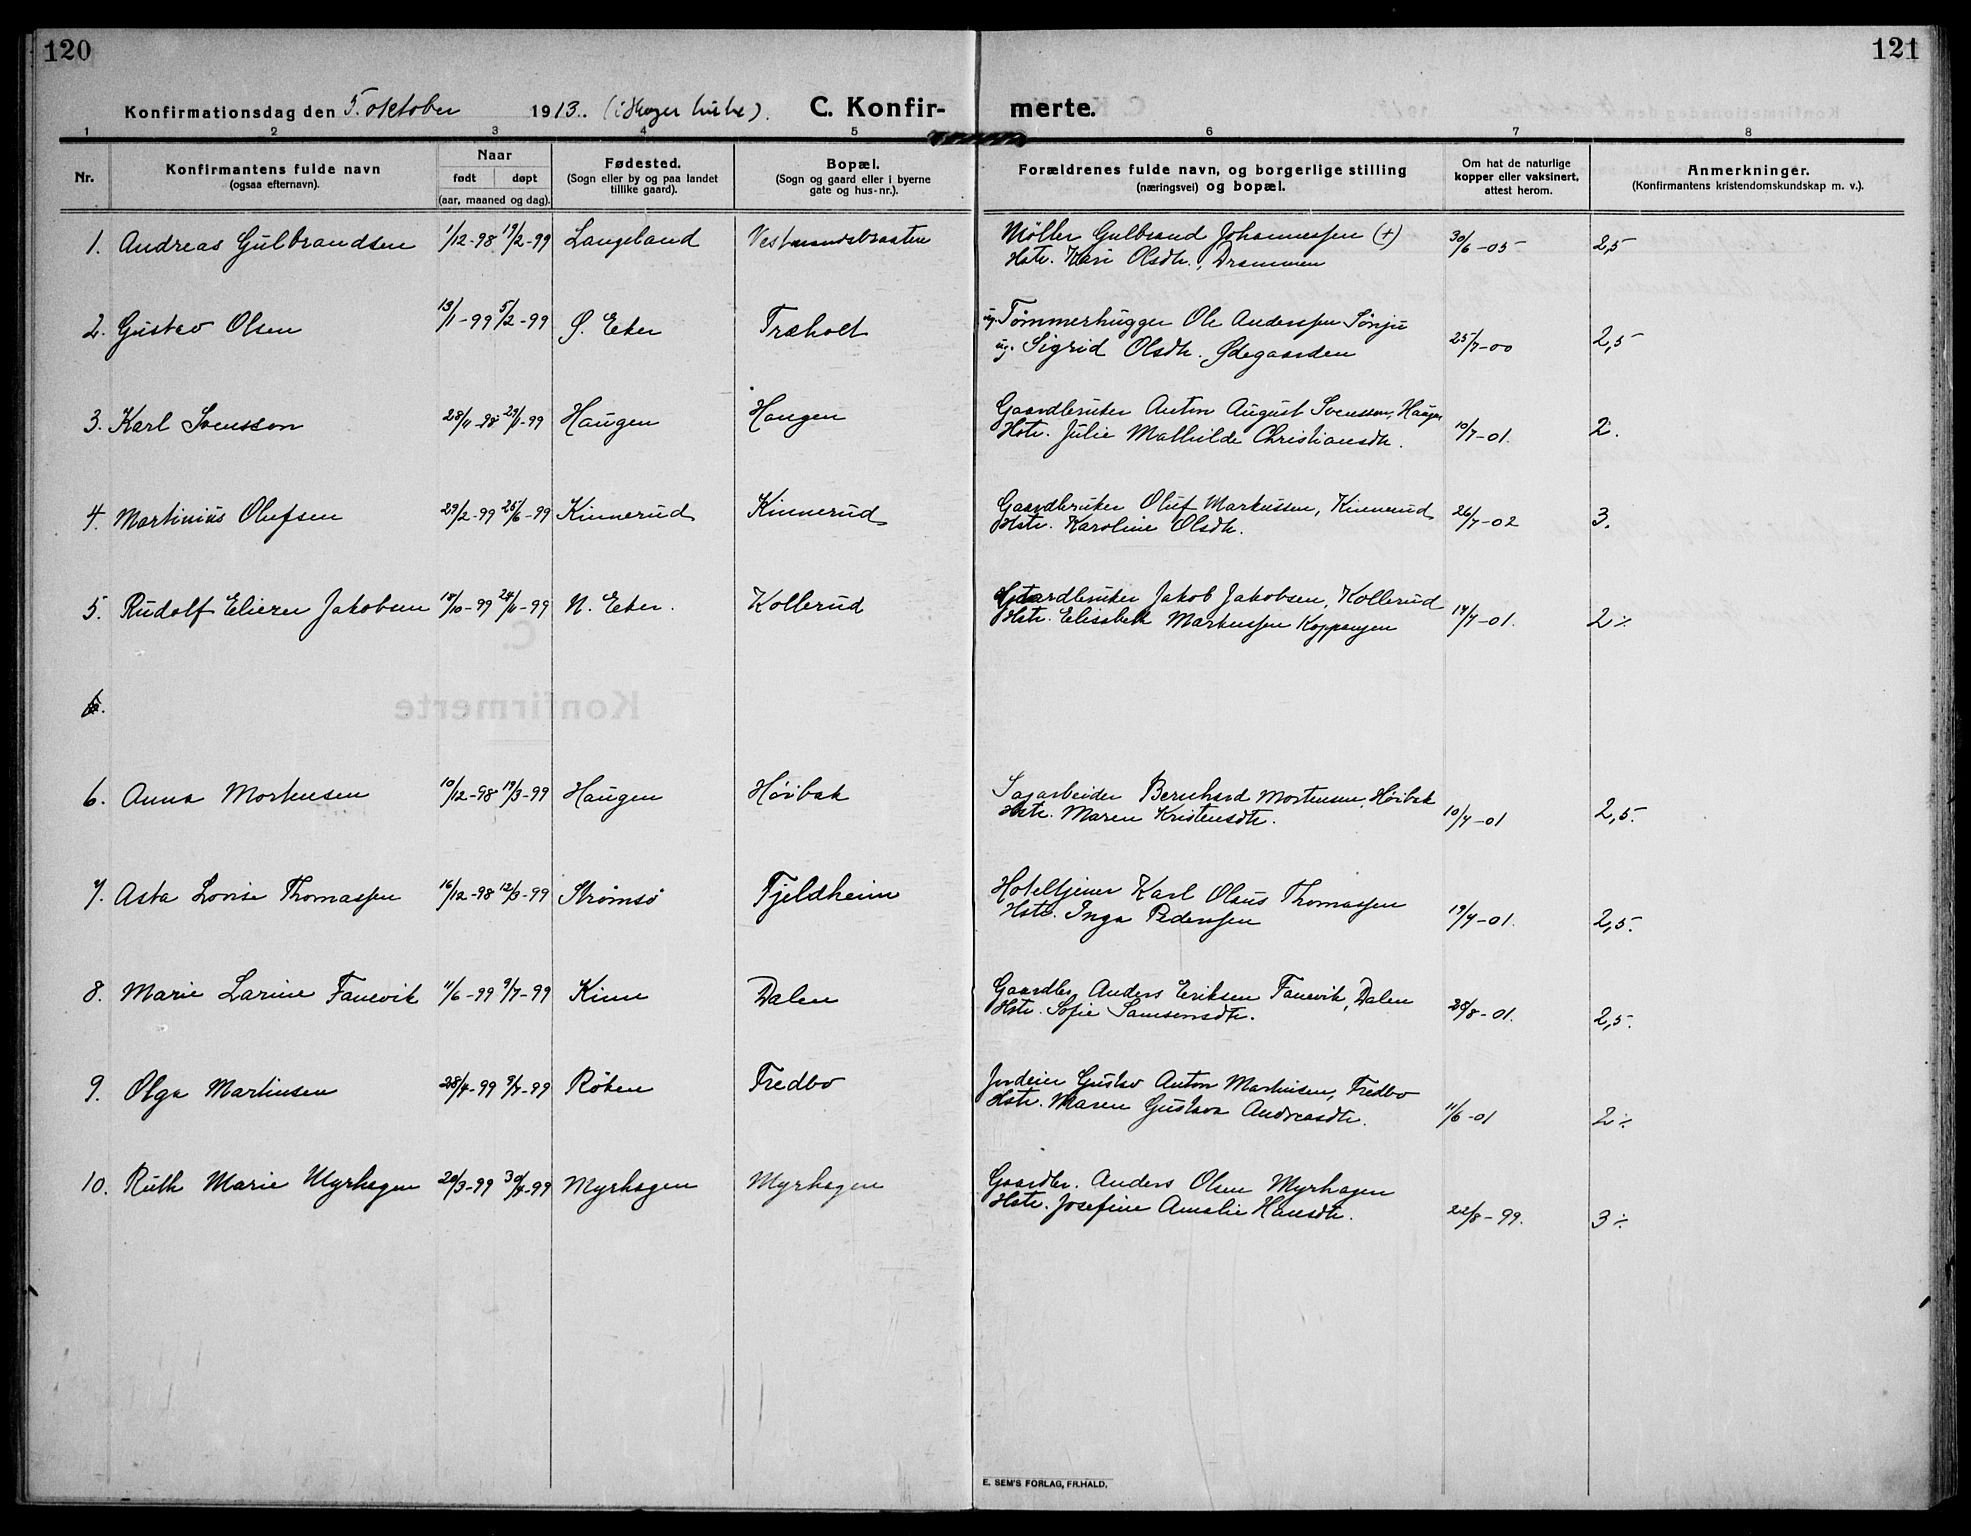 120
121
Konfirmationsdag den 5. oktober 1913. (i Skoger kirke).
C. Konfir-
merte.
1 2 3 4 5 6 7 8
Nr.
Konfirmantens fulde navn
(ogsaa efternavn).
Naar
født døpt
(aar, maaned og dag).
Fødested.
(Sogn eller by og paa landet
tillike gaard).
Bopæl.
(Sogn og gaard eller i byerne
gate og hus-nr.).
Forældrenes fulde navn, og borgerlige stilling
(næringsvei) og bopæl.
Om hat de naturlige
kopper eller vaksinert,
attest herom.
Anmerkninger.
(Konfirmantens kristendomskundskap m. v.).
1. Andreas Gulbrandsen 1/12-98 19/2-99 Langeland Vestmandsbraaten Møller Gulbrand Johannessen (+) 30/6-05 2,5
Hstr. Kari Olsdtr., Drammen
2. Gustav Olsen 13/1-99 5/2-99 Ø. Eker Træholt ug. Tømmerhugger Ole Anderssen Sønju 25/7-00 2,5
ug. Sigrid Olsdtr. Ødegaarden
3. Karl Svensson 28/11-98 29/1-99 Haugen Haugen Gaardbruker Anton August Svensson, Haugen 10/7-01. 2.
Hstr. Julie Mathilde Christiansdtr.
4. Martinius Olufsen 29/2-99 25/6-99 Kinnerud Kinnerud Gaardbruker Oluf Markussen, Kinnerud 26/7-02 3.
Hstr. Karoline Olsdtr.
5. Rudolf Eliezer Jakobsen 18/10-99 24/11-99 N. Eker. Kollerud Gaardbruker Jakob Jakobsen, Kollerud 14/7-01. 2÷
Hstr. Elisabeth Markussen Koppangen
6.
6. Anna Mortensen 10/12-98 19/3-99 Haugen Høibak Sagarbeider Bernhard Mortensen, Høibak 10/7-01 2,5.
Hstr. Maren Kristensdtr.
7. Asta Lovise Thomassen 16/12-98 12/3-99 Strømsø Fjeldheim Hoteltjener Karl Olaus Thomassen 19/7-01. 2,5.
Hstr. Inga Pederssen
8. Marie Larine Fanevik 11/6-99 9/7-99 Kinn Dalen Gaardbr. Anders Eriksen Fanevik, Dalen 28/8-01. 2,5.
Hstr. Sofie Samsonsdtr.
9. Olga Martinsen 28/4-99 9/7-99 Røken Fredbo Jordeier Gustav Anton Martinsen, Fredbo 11/6-01 2÷
Hstr. Maren Gustava Andreasdtr.
10. Ruth Marie Myrhagen 20/3-99 30/4-99 Myrhagen Myrhagen Gaardbr. Anders Olsen Myrhagen 22/8-99. 3÷
Hstr. Josefine Amalie Hansdtr.
E. SEM'S FORLAG, FR.HALD.